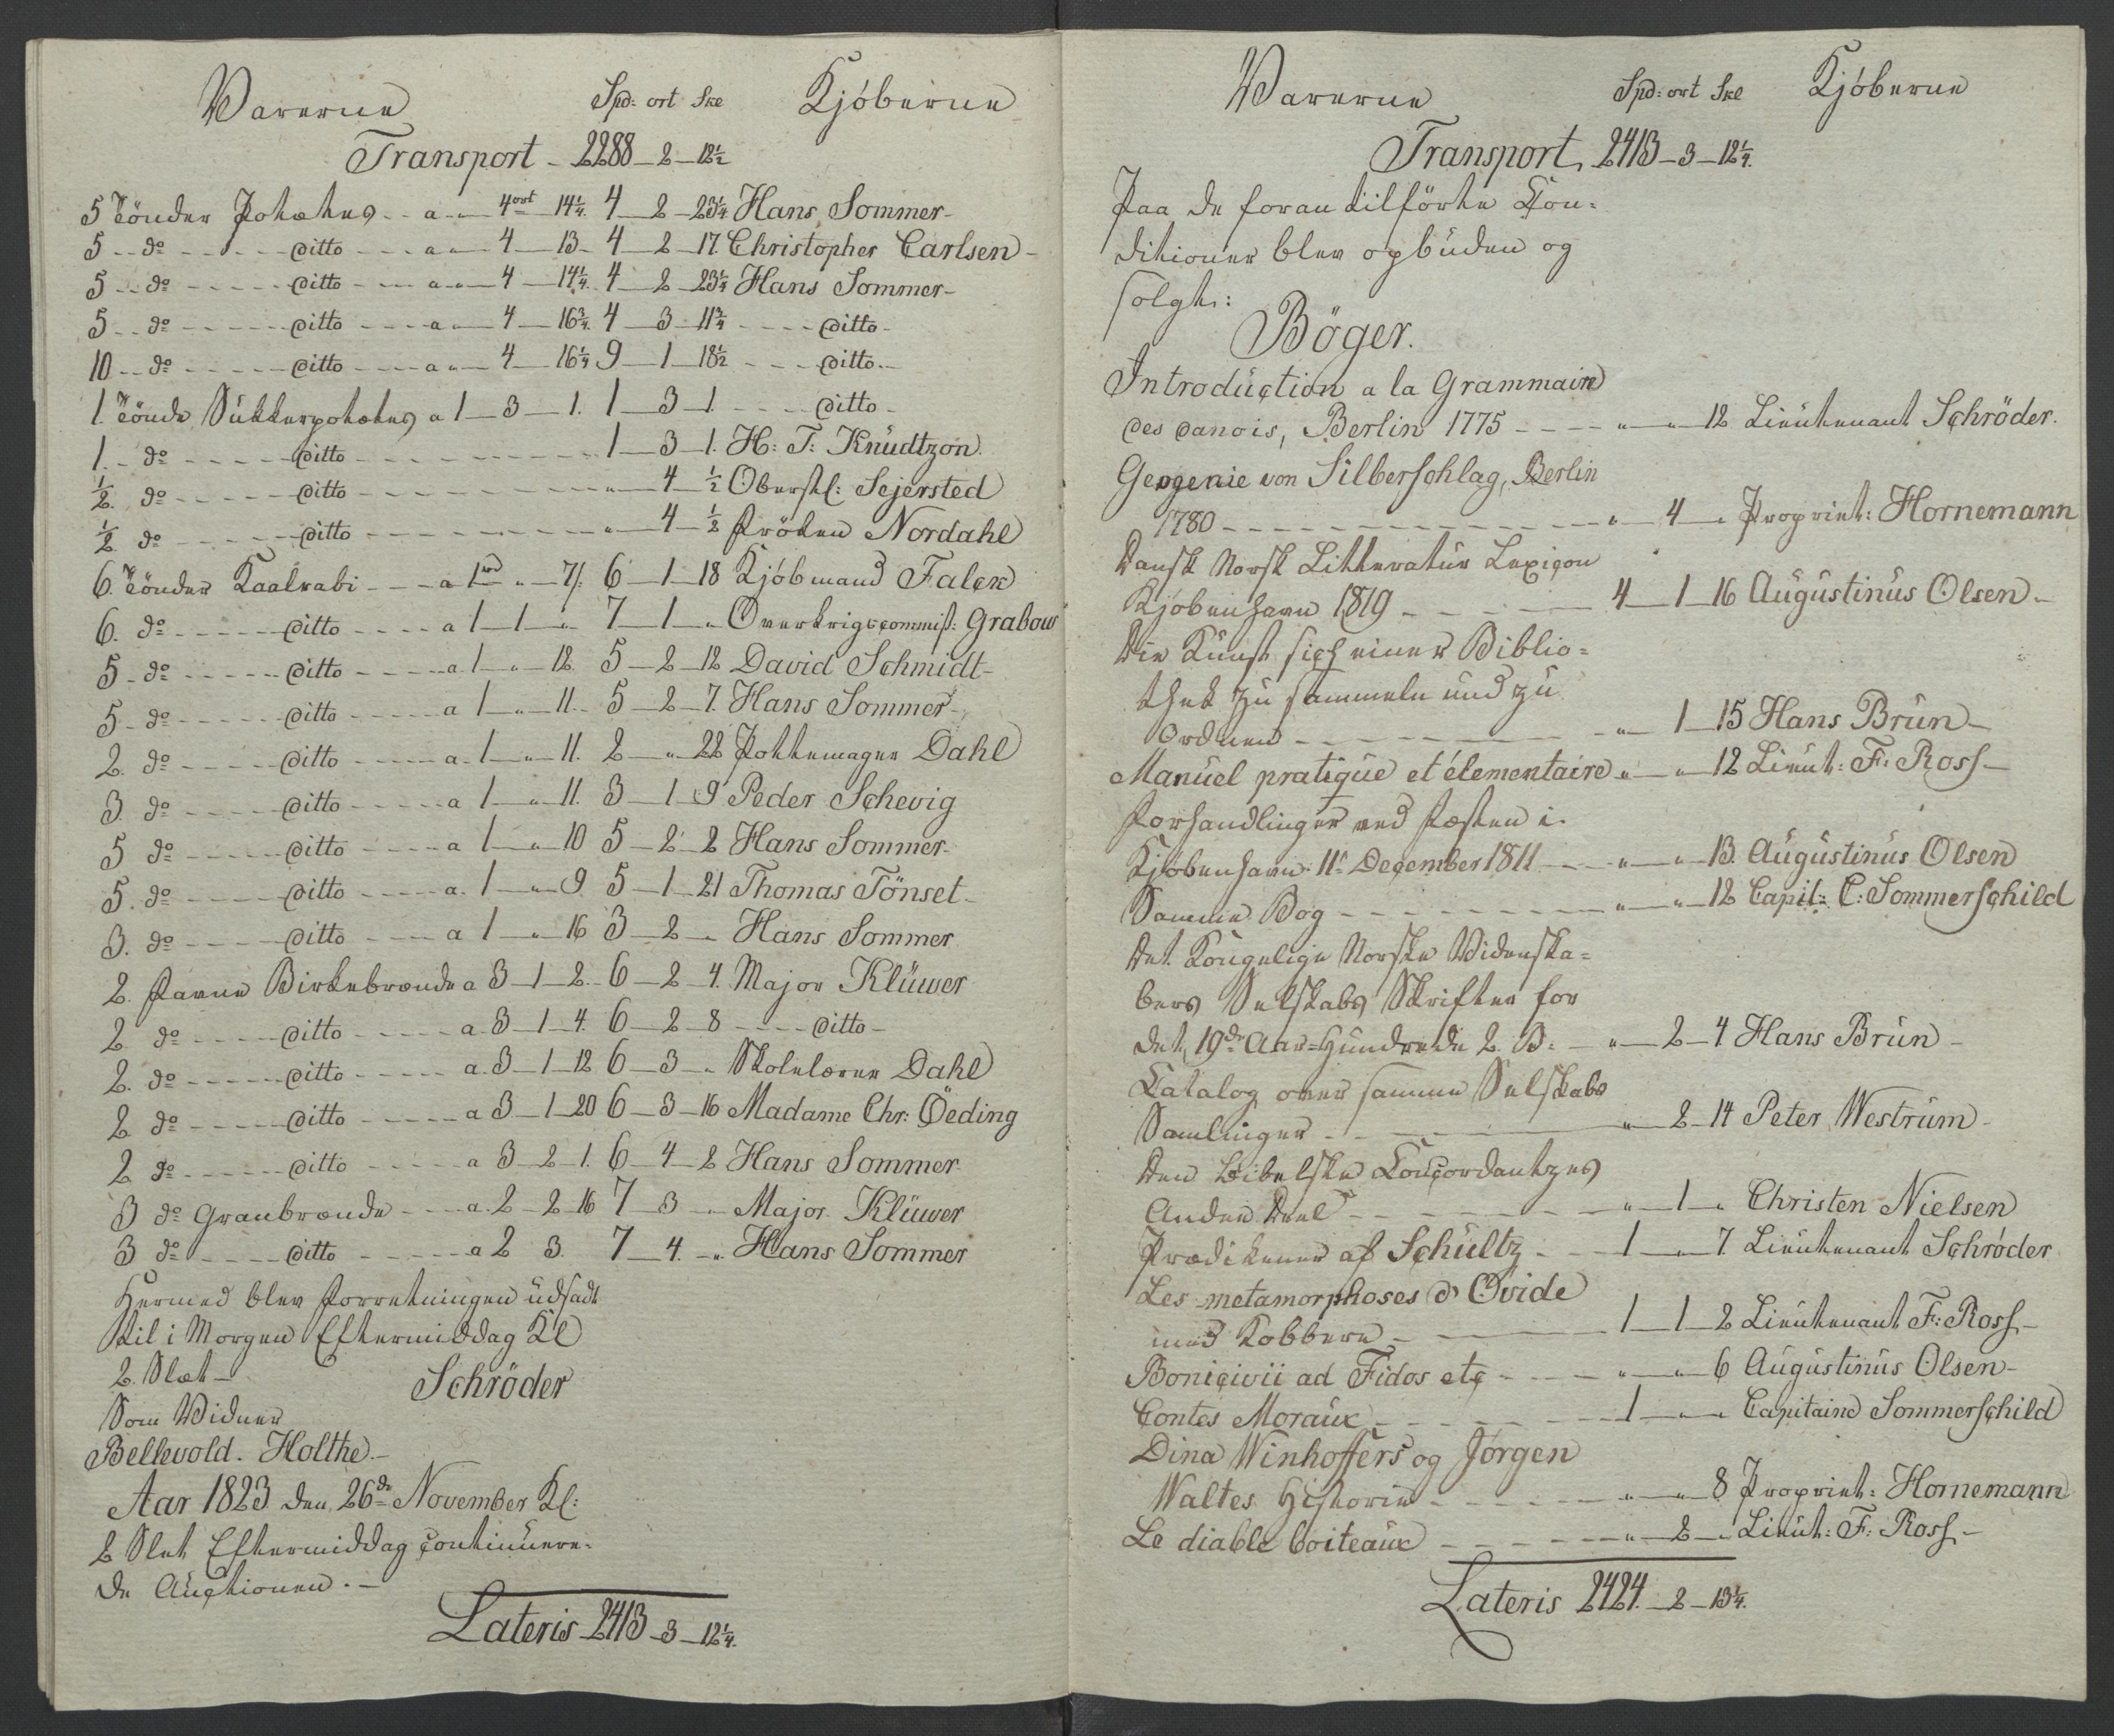 Varerne Spd: ort Ske Kjöberne
Transport - 2288 - 2 - 12½
5 Tönder Potætes - - a - 4 ort 14¼. 4 - 2 - 23¼ Hans Sommer -
5 - - do - - - - - ditto - - - a - 4 - 13 - 4 - 2 - 17 Christopher Carlsen -
5 - - do - - - - - ditto - - - a - 4 - 14¼. 4 - 2 - 23¼ Hans Sommer -
5 - - do - - - - - ditto - - - a - 4 - 16¾. 4 - 3 - 11¾ - - - - ditto -
10 - - do - - - - - ditto - - - a - 4 - 16¼ 9 - 1 - 18½ - - - ditto -
1. Tönde Sukkerpotætes a 1 - 3 - 1. 1 - 3 - 1. - - - - ditto -
1. - do - - - - - ditto - - - - - - - 1 - 3 - 1. H: T: Knudtzon.
½. do - - - - - ditto - - - - - - - " - 4 - ½ Oberstl: Sejersted
½. do - - - - - ditto - - - - - - - " - 4 - ½ Fröken Nordahl
6. Tönder Kaalrabi - - - a 1 - " - 7/. 6 - 1 - 18 Kjöbmand Falck
6. do - - - - - ditto - - - - a 1 - 1 - " 7 - 1 - " Overkrigscommiss: Grabow
5 - do - - - - - ditto - - - - a 1 - " - 12. 5 - 2 - 12 David Schmidt -
5 - do - - - - - ditto - - - - a 1 - " - 11. - 5 - 2 - 7. Hans Sommer -
2. do - - - - - ditto - - - - a. 1 - " - 11. 2 - " - 22 Pottemager Dahl
3. do - - - - - ditto - - - - a 1 - " - 11. 3 - 1 - 9 Peder Schevig
5 do - - - - - ditto - - - - a 1 - " - 10 5 - 2 - 2 Hans Sommer -
5. do - - - - - ditto - - - - a. 1 - " - 9. 5 - 1 - 21 Thomas Tönset -
3. do - - - - - ditto - - - - a 1 - " - 16 3 - 2 - " Hans Sommer
2. Favne Birkebrænde a 3 - 1 - 2. - 6 - 2 - 4. Major Klüwer
2. do - - - - - ditto - - - - a. 3 - 1 - 4. 6 - 2 - 8 - - - - ditto -
2. do - - - - - ditto - - - - a. 3 - 1 - 12 6 - 3 - " Skolelærer Dahl
2 do - - - - - ditto - - - - a 3 - 1 - 20 6 - 3 - 16 Madame Chr: Öeding
2 do - - - - - ditto - - - - a 3 - 2 - 1. 6 - 4 - 2 Hans Sommer
3 do Granbrænde - - - a. 2 - 2 - 16 7 - 3 - " Major Klüwer
3 do - - - - ditto - - - - a 2 3. 7 - 4. - " Hans Sommer
Hermed blev Forretningen udsadt
til i Morgen Eftermiddag Kl
2. Slæt -
Schröder
Som Vidner
Bellevold. Holthe. -
Aar 1823 den 26de November Kl:
2 Slet Eftermiddag continuere-
de Auctionen. -
Lateris 2413 - 3 - 12¼.
Varerne Spd: ort Ske Kjöberne
Transport, 2413 - 3 - 12¼.
Paa de foran tilförte Con-
ditioner blev opbuden og
solgt:
Böger.
Introduction a la Grammaire
des danois, Berlin 1775 - - - - " - " - 12 Lieutenant Schröder.
Geogenie von Silberschlag, Berlin
1780 - - - - - - - - - " - 4 - " Propriet: Hornemann
Dansk Norsk Litteratur Lexicon
Kjöbenhavn 1819 - - - - 4 - 1 - 16 Augustinus Olsen -
Die Kunst sich einer Biblio-
thek zu sammeln und zu
Ordnen - - - - - - - " - 1 - 15 Hans Brun -
Manuel pratique et élementaire " - " - 12 Lieut: F: Ross -
Forhandlinger ved Fæsten i.
Kjöbenhavn 11t December 1811 - - " - " - 13. Augustinus Olsen
Samme Bog - - - - - - - " - " - 12 Capit: C: Sommerschild
Det Kongelige Norske Videnska-
bers Selskabs Skrifter for
det, 19de Aar-Hundrede 2. B: - " - 2 - 4 Hans Brun -
Catalog over samme Selskabs
Samlinger - - - " - 2 - 14 Peter Westrum -
Den Bibelske Concordantzes
Anden Deel - - - - - - " - 1 - " Christen Nielsen
Prædikener af Schultz - - - 1 - " - 7 Lieutenant Schröder
Les metamorphoses d' Ovide
med Kobbere - - - 1 - 1 - 2 Lieutenant F: Ross -
Bonicivii ad Fidos etc - - - - " - " - 6 Augustinus Olsen -
Contes Moraux - - - - - - 1 - " - " Capitaine Sommerschild
Dina Winhoffers og Jörgen
Waltes Historie - - - - - " - " - 8 Propriet: Hornemann
Le diable boiteaux - - - - - " - 2 - " Lieut: F: Ross -
Lateris 2424. - 2 - 13¼.